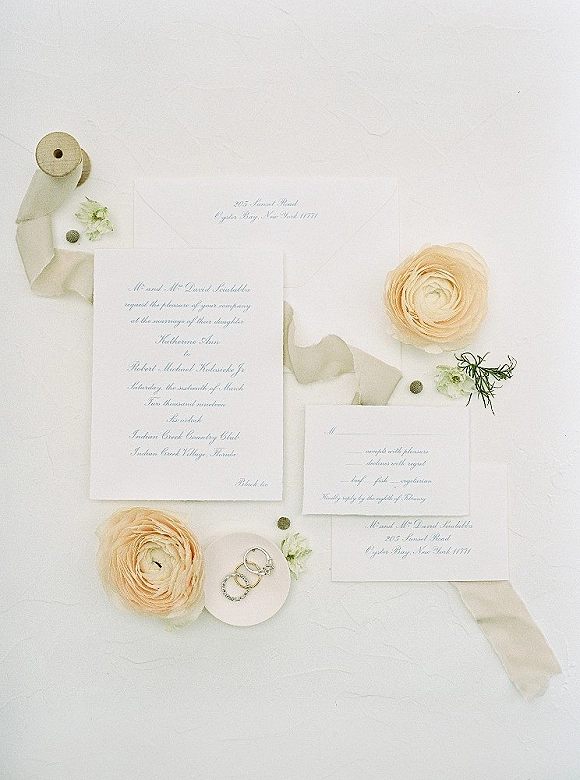 205 Sunset Road
Oyster Bay, New York 11771
Mr. and Mrs. David
request the pleasure of your company
at the marriage of their daughter
Katherine Ann
to
Robert Michael Jr
Saturday, the sixteenth of March
Two thousand nineteen
Six o'clock
Indian Creek Country Club
Indian Creek Village, Florida
Black tie
M
accepts with pleasure
declines with regret
beef fish vegetarian
Kindly reply by the eighth of February
Mr. and Mrs. David
205 Sunset Road
Oyster Bay, New York 11771